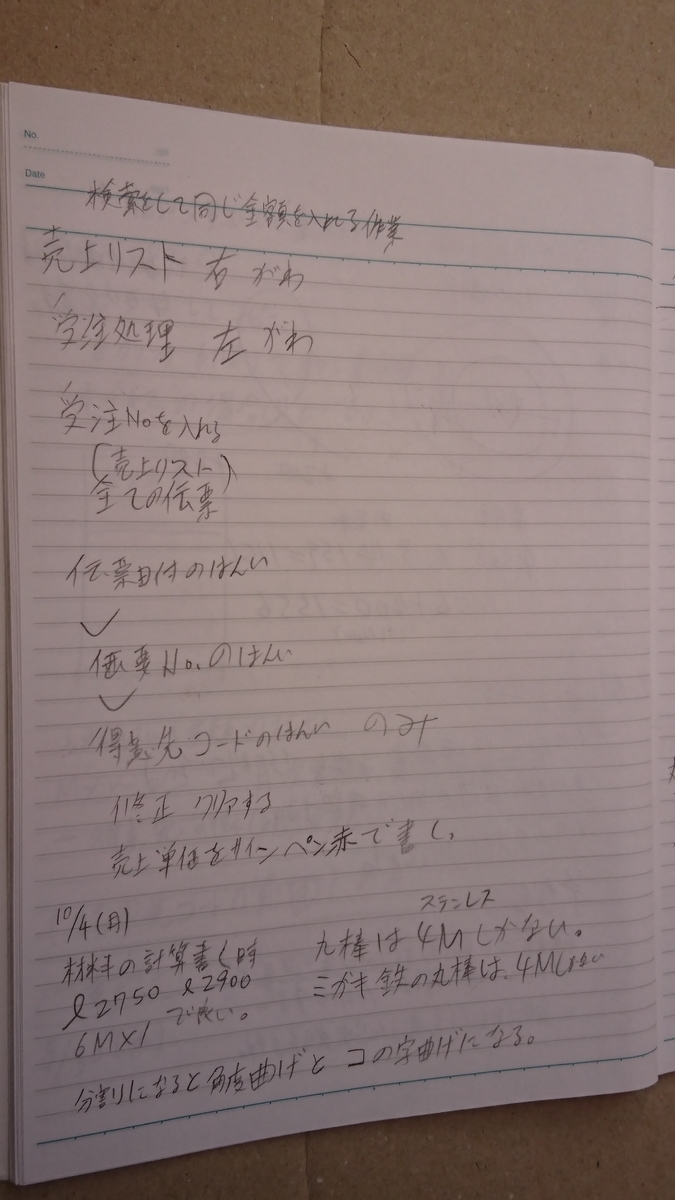 No.
Date
検索をして同じ金額を入れる作業
売上リスト 右 がわ
受注処理 左 がわ
受注Noを入れる
(売上リスト)
全ての伝票
伝票日付のはんい
伝票No.のはんい
得意先コードのはんい のみ
修正 クリアする
売上単価をサインペン赤で書く。
10/4(月)
材料の計算書く時
ℓ2750 ℓ2900
6M×1 で良い。
ステンレス
丸棒は4Mしかない。
ミガキ鉄の丸棒は、4Mしかない
分割りになると角度曲げと コの字曲げになる。